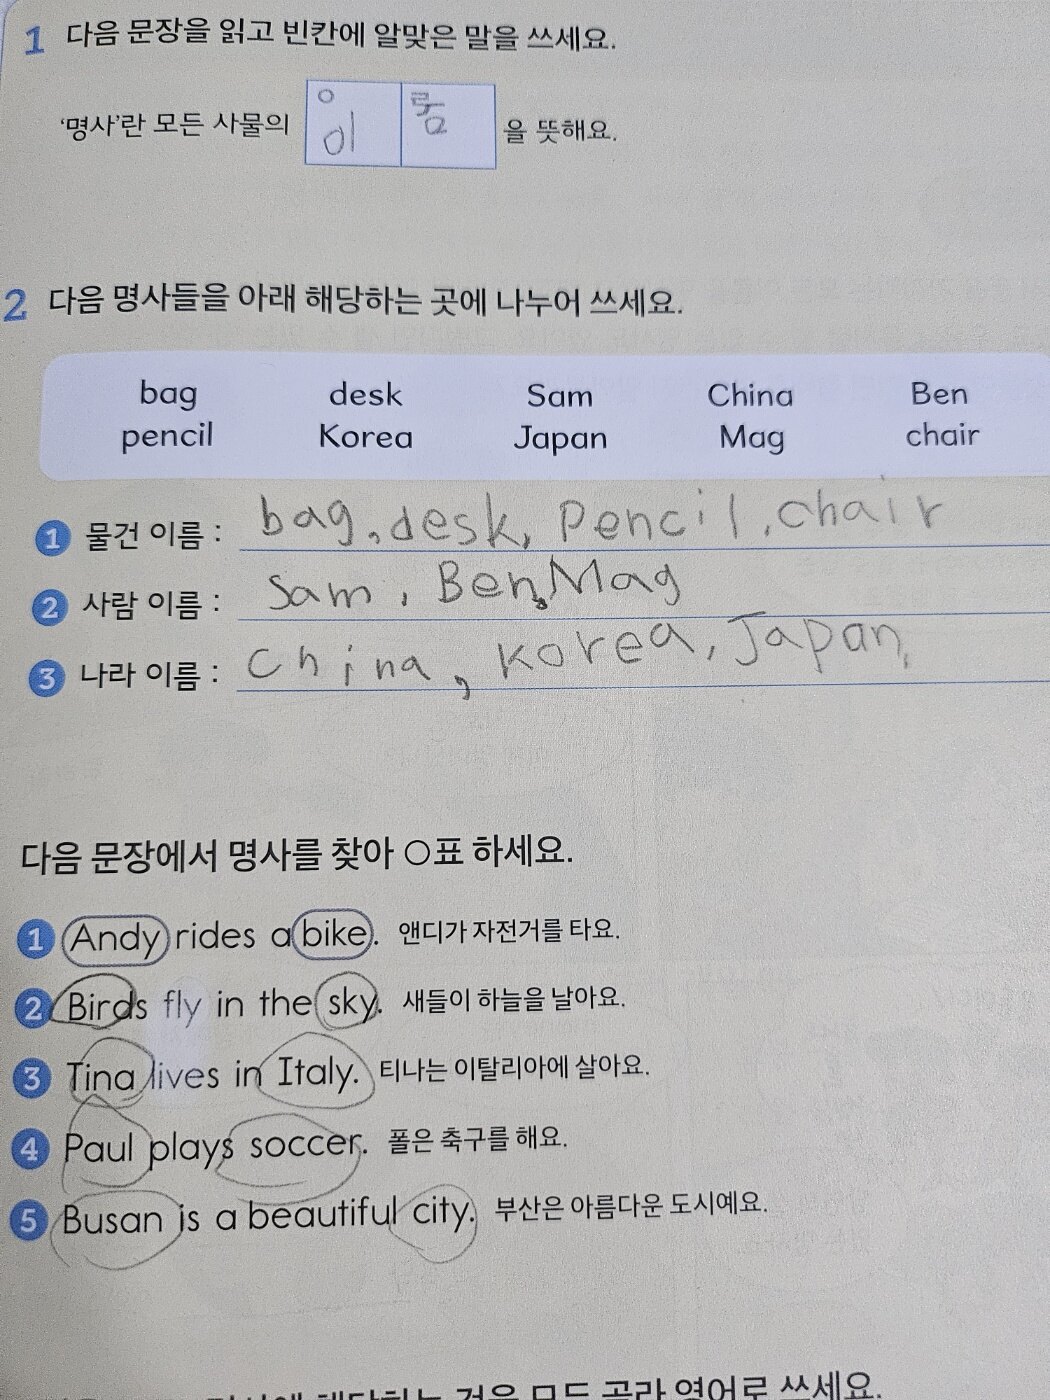 1 다음 문장을 읽고 빈칸에 알맞은 말을 쓰세요.
'명사'란 모든 사물의 이 름 을 뜻해요.
2 다음 명사들을 아래 해당하는 곳에 나누어 쓰세요.
bag desk Sam China Ben
pencil Korea Japan Mag chair
1 물건 이름 : bag, desk, pencil, chair
2 사람 이름 : Sam, Ben, Mag
3 나라 이름 : China, Korea, Japan,
다음 문장에서 명사를 찾아 ○표 하세요.
1 Andy rides a bike. 앤디가 자전거를 타요.
2 Birds fly in the sky. 새들이 하늘을 날아요.
3 Tina lives in Italy. 티나는 이탈리아에 살아요.
4 Paul plays soccer. 폴은 축구를 해요.
5 Busan is a beautiful city. 부산은 아름다운 도시예요.
해당하는 것을 모두 골라 영어로 쓰세요.